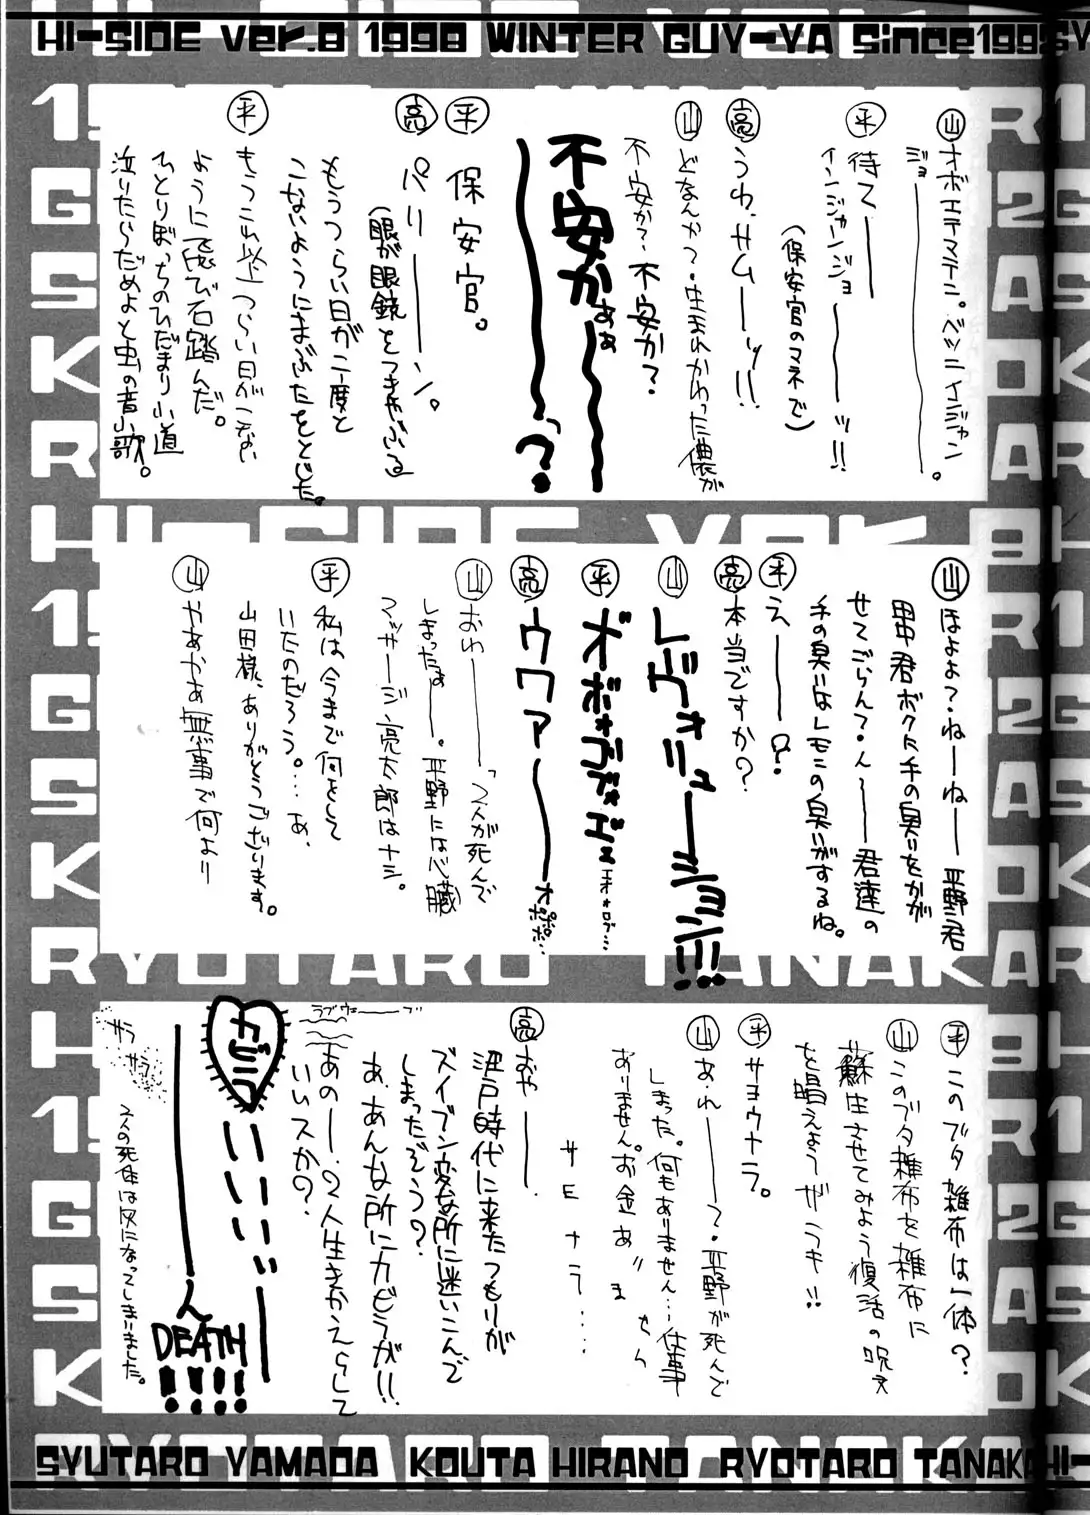 HI-SIDE ver.8 1998 WINTER GUY-YA Since1995
㊤山 オボエテマテニ。ベツニインジャン
ジョー────。
平 待て──
インジャンジョ───ッ!!
(保安官のマネで)
亮 うわ、サム──ッ!!
山 どなんかつ・生まれかわった儂が
不安か?・不安か?
不安か?
不安かぁぁ〜〜〜〜?
平 保安官。
亮 パリ───ン。
(眼が眼鏡をつきやぶる
もうつらい日が二度と
こないようにまぶたをとじた。
平 もうこれ以上つらい日がこない
ように飛び石踏んだ。
ひとりぼっちのひだまり小道
泣いたらだめよと虫の音小歌。
山 ほよよ?ねーねー 平野君
田中君ボクに手の臭いをかが
せてごらん?・ん〜──君達の
手の臭いはレモンの臭いがするね。
平 え───?
亮 本当ですか?
山 レヴォリューション!!!
平 オボォゴブォゴェ
亮 ウワァ〜〜〜
山 おわ───「2人が死んで
しまったぁー。平野には心臓
マッサージ、亮太郎はナシ。
平 私は今まで何をして
いたのだろう。…あ、
山田様、ありがとうございます。
山 やあやあ無事で何より
平 このブタ雑布は一体?
山 このブタ雑布を雑布に
蘇生させてみよう復活の呪文
を唱えよう ザラキ!!
平 サヨウナラ。
山 あれ───?・平野が死んで
しまった。何もありません…仕事
ありません。お金あ〃ま
せん
サエナラ…
亮 おや──.
江戸時代に来たつもりが
ズイブン変な所に迷いこんで
しまったぞう?
あ、あんな所にカビラが!!
あのー、2人生きかえらして
いいスか?
ラブウェーーブ
カビラ
いいいいい──
────ん
DEATH
!!!!
サラ
サラ
2人の死体は灰になってしまいました。
SYUTARO YAMADA KOUTA HIRANO RYOTARO TANAKA HI-